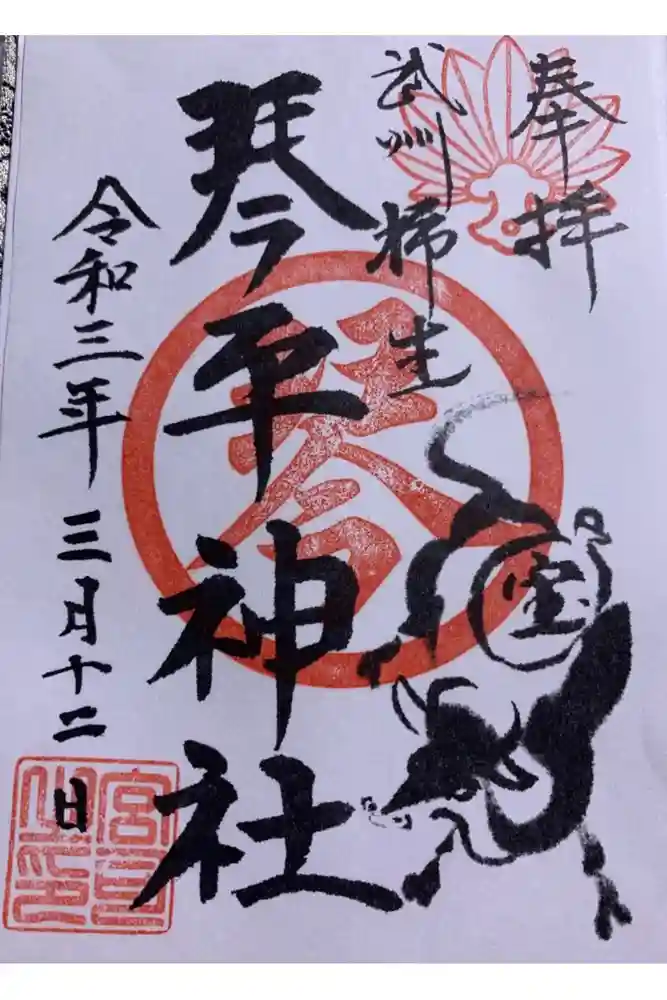 奉拝
武州
柿生
琴平神社
琴
宝
令和三年三月十二日
宮司之印